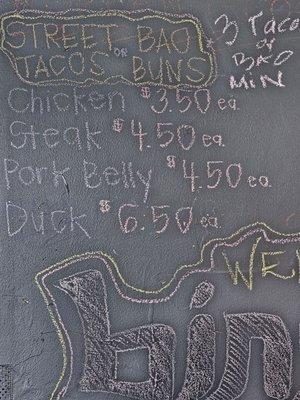 STREET OR BAO
TACOS BUNS
* 3 TACO
OR
BAO
MIN
Chicken $3.50 ea.
Steak $4.50 ea.
Pork Belly $4.50 ea.
Duck $6.50 ea.
WE
bin